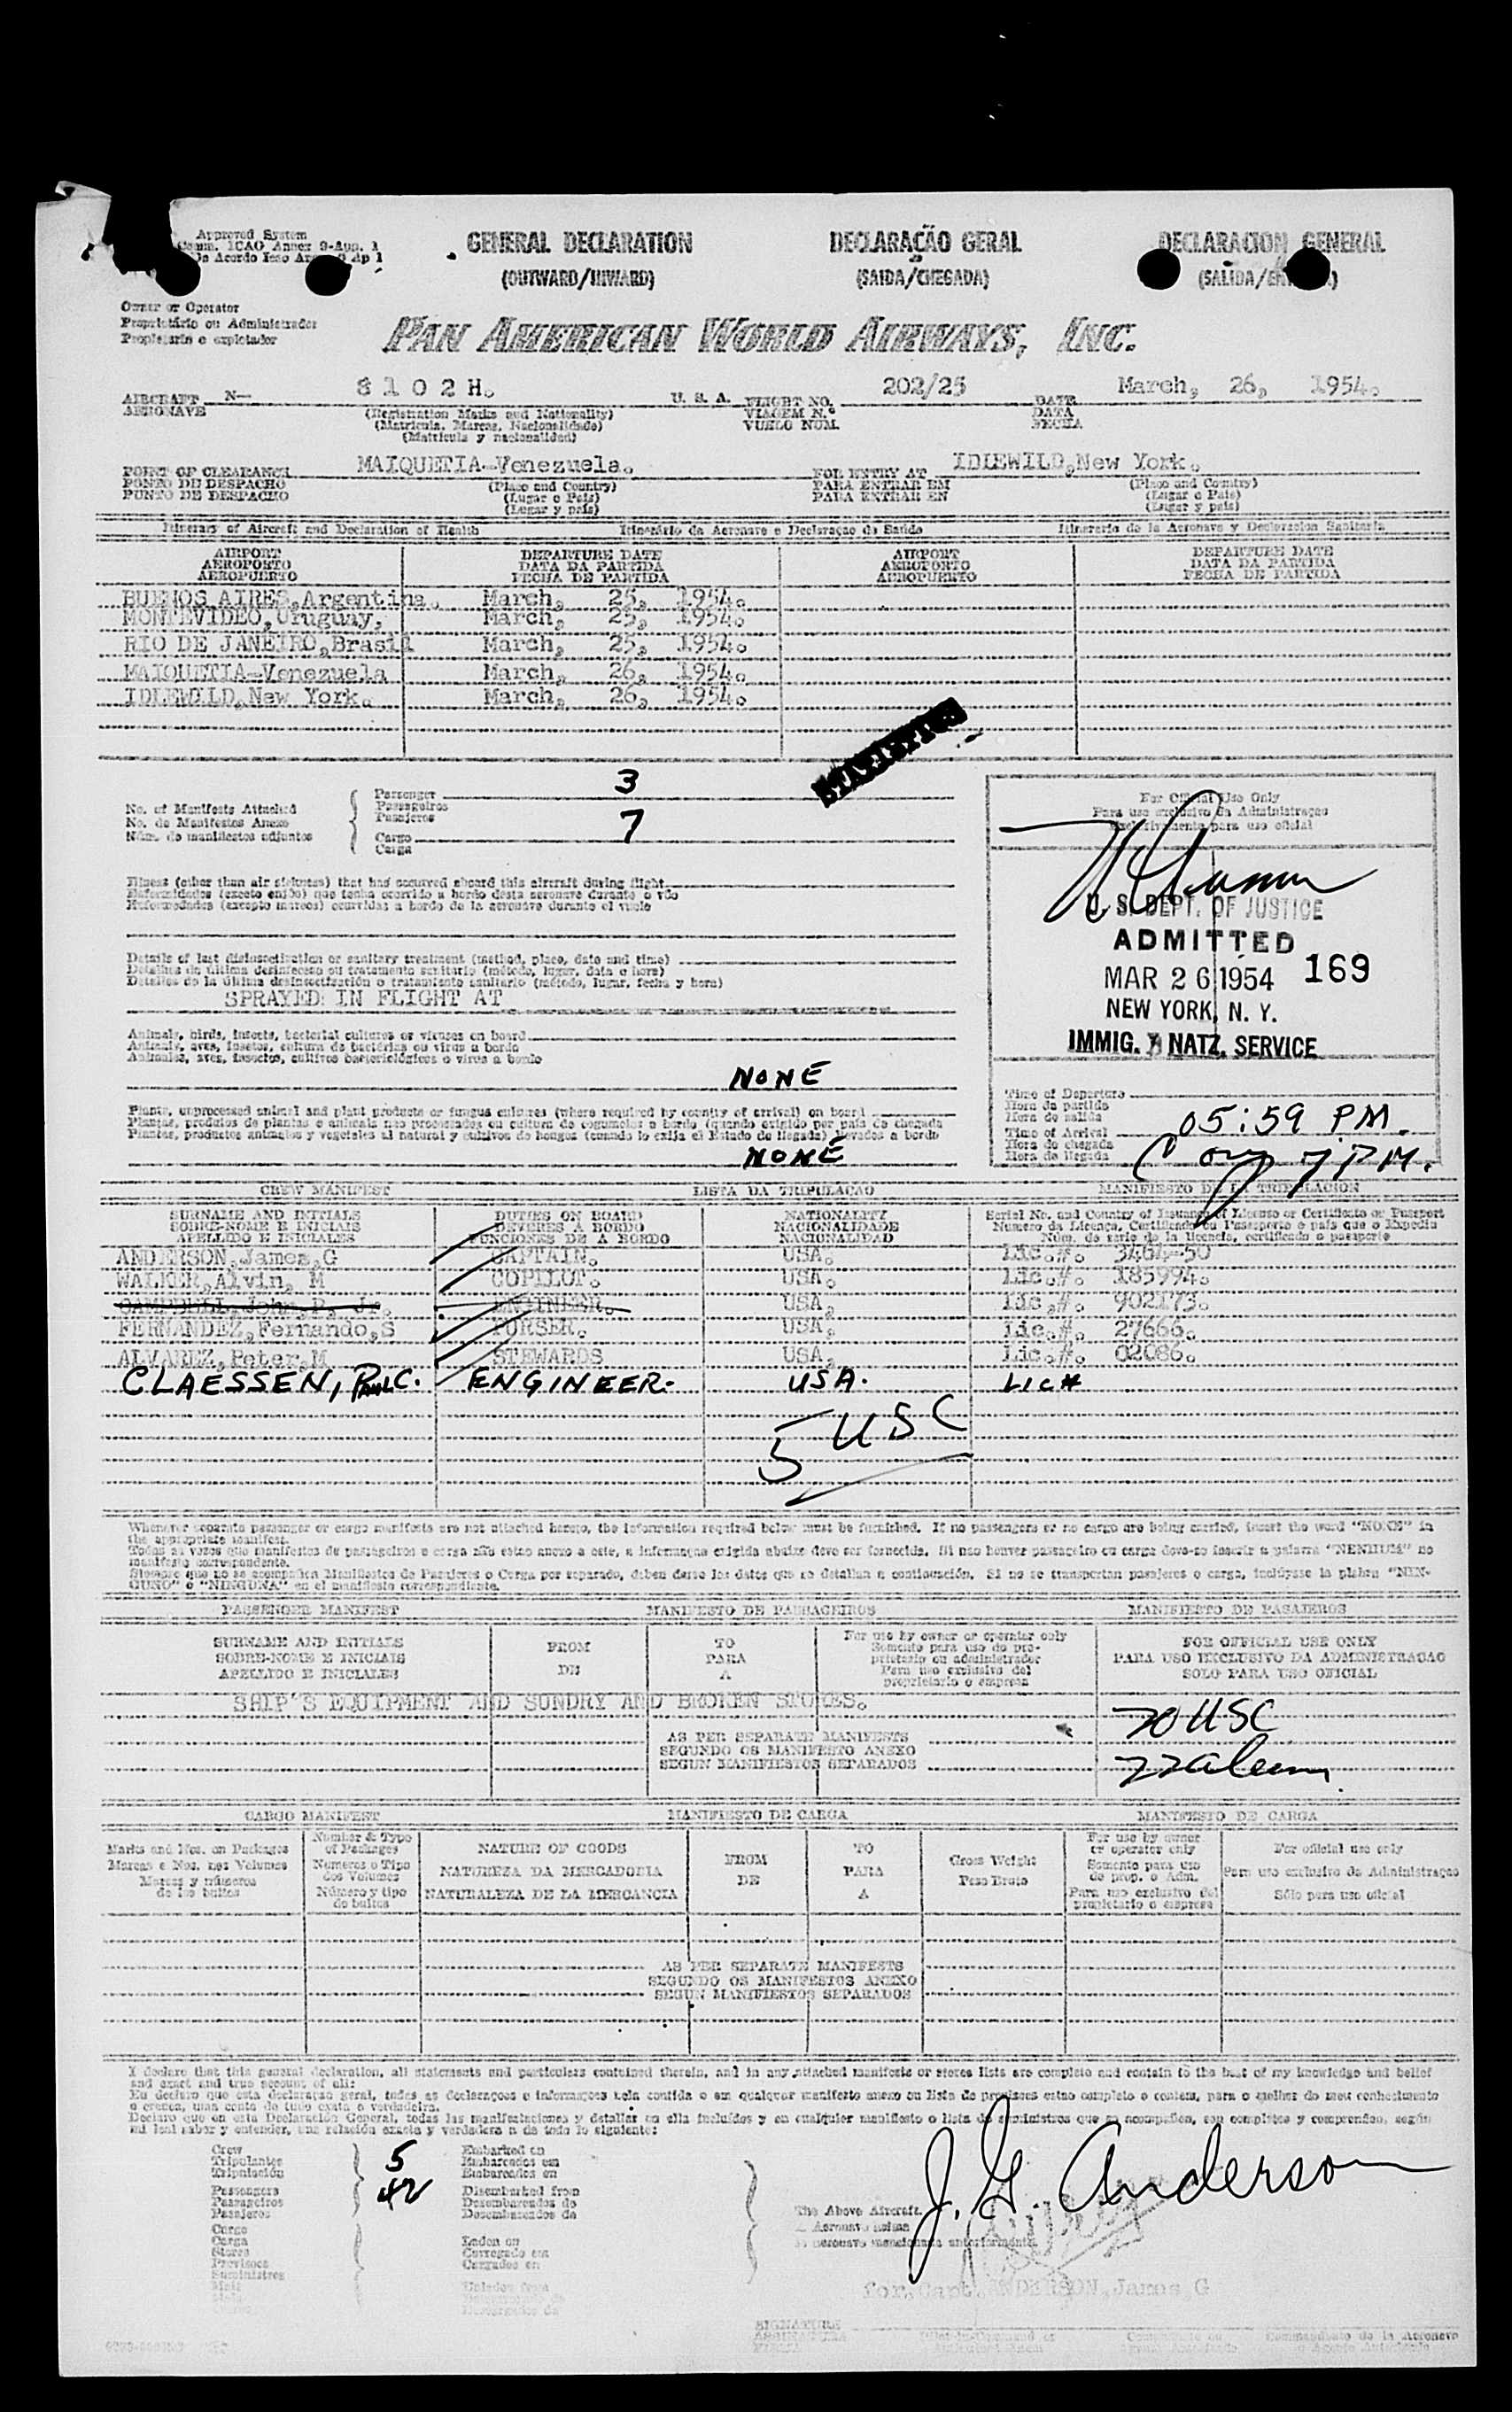 Approved System
Comm. ICAO Annex 9-App. 1
De Acordo Icao Anexo 9 Ap 1
GENERAL DECLARATION
(OUTWARD/INWARD)
DECLARAÇÃO GERAL
(SAIDA/CHEGADA)
DECLARACION GENERAL
(SALIDA/
Owner or Operator
Proprietário ou Administrador
Propietario o explotador
PAN AMERICAN WORLD AIRWAYS, INC.
AIRCRAFT N- 8102H. U. S. A. FLIGHT NO. 202/25 DATE March, 26, 1954.
AERONAVE (Registration Marks and Nationality) VIAGEM N.º DATA
(Matricula, Marcas, Nacionalidade) VUELO NUM. FECHA
(Matricula y nacionalidad)
POINT OF CLEARANCE MAIQUETIA-Venezuela. FOR ENTRY AT IDLEWILD,New York.
PONTO DE DESPACHO (Place and Country) PARA ENTRAR EM (Place and Country)
PUNTO DE DESPACHO (Lugar e País) PARA ENTRAR EN (Lugar e País)
(Lugar y país) (Lugar y país)
Itinerary of Aircraft and Declaration of Health Itinerário da Aeronave e Declaraçao de Saúde Itinerario de la Aeronave y Declaracion Sanitaria
AIRPORT DEPARTURE DATE AIRPORT DEPARTURE DATE
AEROPORTO DATA DA PARTIDA AEROPORTO DATA DA PARTIDA
AEROPUERTO FECHA DE PARTIDA AEROPUERTO FECHA DE PARTIDA
BUENOS AIRES,Argentina. March, 25, 1954.
MONTEVIDEO,Uruguay, March, 25, 1954.
RIO DE JANEIRO,Brasil March, 25, 1954.
MAIQUETIA-Venezuela March, 26, 1954.
IDLEWILD,New York. March, 26, 1954.
STATISTICS
No. of Manifests Attached
No. de Manifestos Anexo
Núm. de manifiestos adjuntos
Passenger 3
Passageiros
Pasajeros
Cargo 7
Carga
For Official Use Only
Para uso exclusivo da Administraçao
Exclusivamente para uso oficial
U. S. DEPT. OF JUSTICE
ADMITTED
MAR 26 1954 169
NEW YORK, N. Y.
IMMIG. & NATZ. SERVICE
Illness (other than air sickness) that has occurred aboard this aircraft during flight
Enfermidades (exceto enjôo) que tenha ocorrido a bordo desta aeronave durante o vôo
Enfermedades (excepto mareos) ocurridas a bordo de la aeronave durante el vuelo
Details of last disinsectization or sanitary treatment (method, place, date and time)
Detalhes da última desinfecsao ou tratamento sanitario (método, lugar, data e hora)
Detalles de la última desinsectización o tratamiento sanitario (método, lugar, fecha y hora)
SPRAYED: IN FLIGHT AT
Animals, birds, insects, bacterial cultures or viruses on board
Animais, aves, insetos, cultura de bactérias ou virus a bordo
Animales, aves, insectos, cultivos bacteriológicos o virus a bordo
NONE
Plants, unprocessed animal and plant products or fungus cultures (where required by country of arrival) on board
Plantas, produtos de plantas e animais nao processados ou cultura de cogumelos a bordo (quando exigido por pais de chegada
Plantas, productos animales y vegetales al natural y cultivos de hongos (cuando lo exija el Estado de llegada) llevados a bordo
NONE
Time of Departure
Hora da partida
Hora de salida
Time of Arrival 05:59 PM.
Hora de chegada
Hora de llegada 7PM.
CREW MANIFEST LISTA DA TRIPULACAO MANIFIESTO DE LA TRIPULACION
SURNAME AND INITIALS DUTIES ON BOARD NATIONALITY Serial No. and Country of Issuance of License or Certificate or Passport
SOBRE-NOME E INICIAIS DEVERES A BORDO NACIONALIDADE Numero da Licença, Certificado ou Passaporte e pais que o Expediu
APELLIDO E INICIALES FUNCIONES DE A BORDO NACIONALIDAD Núm. de serie de la licencia, certificado o pasaporte
ANDERSON,James,G CAPTAIN. USA. Lic.#. 3464-50
WALKER,Alvin, M COPILOT. USA. Lic.#. 185994.
CAMPBELL,John,P, Jr. ENGINEER. USA, Lic,#. 902173.
FERNANDEZ,Fernando,S PURSER. USA, Lic.#. 27666.
ALVAREZ,Peter,M STEWARDS USA, Lic.#. 02086.
CLAESSEN, PAUL C. ENGINEER. USA. LIC#
5 USC
Whenever separate passenger or cargo manifests are not attached hereto, the information required below must be furnished. If no passengers or no cargo are being carried, insert the word "NONE" in
the appropriate manifest.
Todas as vezes que manifestos de passageiros e carga não estao anexo a este, a informaçao exigida abaixo deve ser fornecida. Si nao houver passageiro ou carga deve-se inserir a palavra "NENHUM" no
manifesto correspondente.
Siempre que no se acompañen Manifiestos de Pasajeros o Carga por separado, deben darse los datos que se detallan a continuación. Si no se transportan pasajeros o carga, inclúyase la plabra "NIN-
GUNO" o "NINGUNA" en el manifiesto correspondiente.
PASSENGER MANIFEST MANIFESTO DE PASSAGEIROS MANIFIESTO DE PASAJEROS
SURNAME AND INITIALS FROM TO For use by owner or operator only FOR OFFICIAL USE ONLY
SOBRE-NOME E INICIAIS DE PARA Somente para uso do pro- PARA USO EXCLUSIVO DA ADMINISTRACAO
APELLIDO E INICIALES A prietario ou administrador SOLO PARA USO OFICIAL
Para uso exclusivo del
proprietario o empresa
SHIP'S EQUIPMENT AND SUNDRY AND BROKEN STORES.
20 USC
AS PER SEPARATE MANIFESTS
SEGUNDO OS MANIFESTO ANEXO
SEGUN MANIFIESTOS SEPARADOS
22 aliens
CARGO MANIFEST MANIFIESTO DE CARGA MANIFESTO DE CARGA
Marks and Nos. on Packages Number & Type of Packages NATURE OF GOODS FROM TO Gross Weight For use by owner or operator only For official use only
Marcas e Nos. nos Volumes Numeros o Tipo dos Volumes NATUREZA DA MERCADORIA DE PARA Peso Bruto Somente para uso do prop. o Adm. Para uso exclusivo da Administraçao
Marcas y números de los bultos Número y tipo de bultos NATURALEZA DE LA MERCANCIA A Para uso exclusivo del propietario o empresa Sólo para uso oficial
AS PER SEPARATE MANIFESTS
SEGUNDO OS MANIFESTOS ANEXO
SEGUN MANIFIESTOS SEPARADOS
I declare that this general declaration, all statements and particulars contained therein, and in any attached manifests or stores lists are complete and contain to the best of my knowledge and belief
and exact and true account of all:
Eu declaro que esta declaraçao geral, todas as declaraçoes e informaçoes nela contida e em qualquer manifesto anexo ou lista de provisoes estao completo e contem, para o melhor do meu conhecimento
e crenca, uma conta de tudo exata e verdadeira.
Declaro que en esta Declaración General, todas las manifestaciones y detalles en ella incluídos y en cualquier manifiesto o lista de suministros que se acompañen, son completos y comprenden, según
mi leal saber y entender, una relación exacta y verdadera a de todo lo siguiente:
Crew 5 Embarked on
Tripulantes Embarcados em
Tripulación Embarcados en
Passengers 42 Disembarked from
Passageiros Desembarcados de
Pasajeros Desembarcados de
Cargo
Carga Laden on
Stores Carregado em
Provisoes Cargados en
Suministros
The Above Aircraft.
J. G. Anderson
for, Capt. ANDERSON, James, G
SIGNATURE